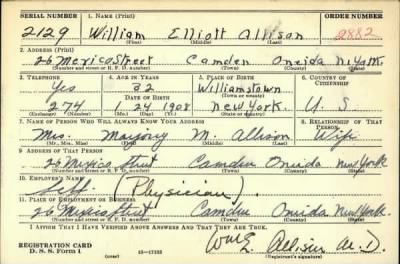 SERIAL NUMBER 1. NAME (Print) ORDER NUMBER
2129 William Elliott Allison 2882
(First) (Middle) (Last)
2. ADDRESS (Print)
26 Mexico Street Camden Oneida N.Y.
(Number and street or R. F. D. number) (Town) (County) (State)
3. TELEPHONE 4. AGE IN YEARS 5. PLACE OF BIRTH 6. COUNTRY OF CITIZENSHIP
Yes 32 Williamstown
DATE OF BIRTH (Town or county)
274 1 24 1908 New York. U. S
(Exchange) (Number) (Mo.) (Day) (Yr.) (State or country)
7. NAME OF PERSON WHO WILL ALWAYS KNOW YOUR ADDRESS 8. RELATIONSHIP OF THAT PERSON
Mrs. Marjory M. Allison Wife
(Mr., Mrs., Miss) (First) (Middle) (Last)
9. ADDRESS OF THAT PERSON
26 Mexico Street Camden Oneida New York
(Number and street or R. F. D. number) (Town) (County) (State)
10. EMPLOYER'S NAME
Self. (Physician).
11. PLACE OF EMPLOYMENT OR BUSINESS
26 Mexico Street Camden Oneida New York.
(Number and street or R. F. D. number) (Town) (County) (State)
I AFFIRM THAT I HAVE VERIFIED ABOVE ANSWERS AND THAT THEY ARE TRUE.
REGISTRATION CARD
D. S. S. Form 1 (over) 16—17105 Wm E Allison M.D.
(Registrant's signature)